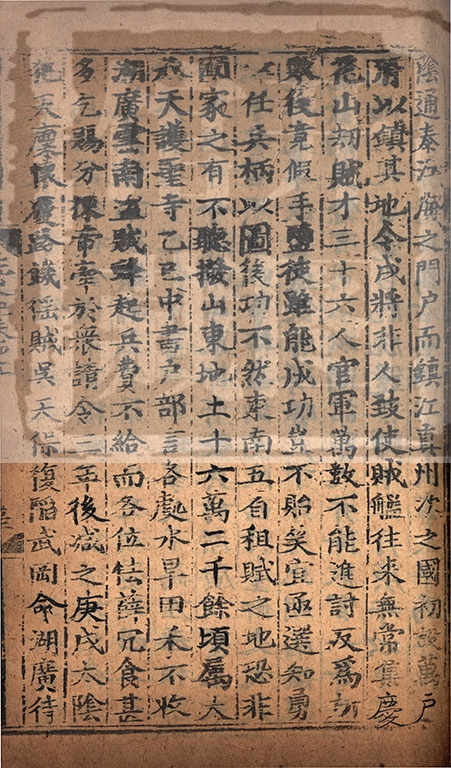 陰通泰江海之門戶而鎮江真州次之國初設萬戶
府以鎮其地今戍將非人致使賊艦往來無常集慶
花山刼賊才三十六人官軍萬數不能進討反為所
敗後竟假手鹽徒雖能成功豈不貽笑宜亟選知勇
以任兵柄以圖後功不然東南五百租賦之地恐非
國家之有不聽撥山東地土十六萬二千餘頃屬大
承天護聖寺乙巳中書戶部言各處水旱田禾不收
湖廣雲南盜賊蜂起兵費不給而各位怯薛冗食甚
多乞賜分揀帝牽於衆請令三年後減之庚戌太陰
犯天廩懷慶路饑徭賊吳天保復陷武岡命湖廣待